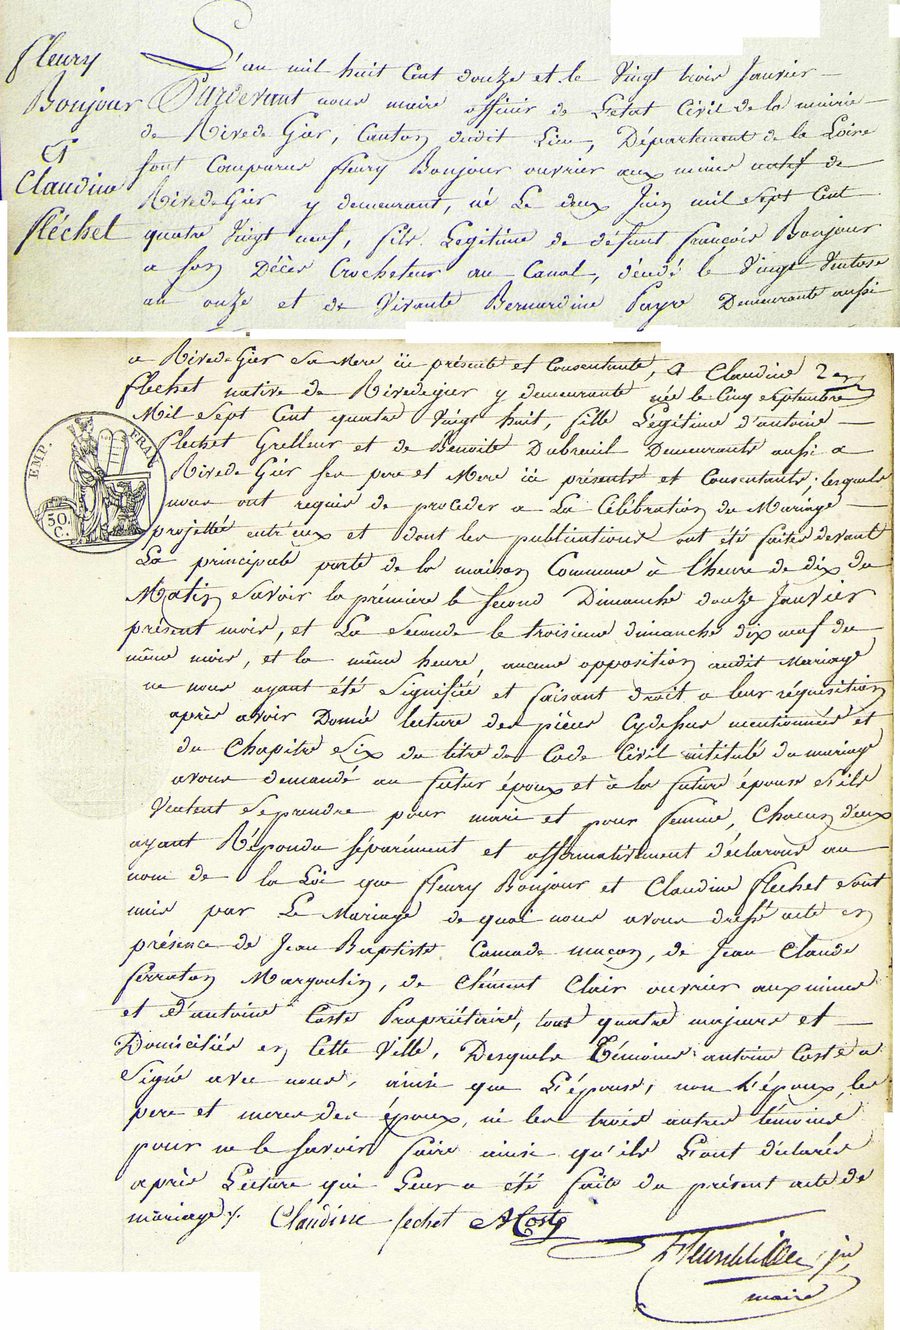 Fleury
Bonjour
Et
Claudine
fléchet
L'an mil huit Cent douze et le Vingt trois Janvier
Pardevant nous maire officier de L'état Civil de la mairie
de Rive de Gier, Canton dudit Lieu, Département de la Loire
sont Comparus fleury Bonjour ouvrier aux mines natif de
Rive de Gier y demeurant, né Le deux Juin mil Sept Cent
quatre Vingt neuf, fils Legitime de défunt françois Bonjour
a son Décès Crocheteur au Canal, décédé le Vingt Ventose
an onze et de Vivante Bernardine Payre Demeurante aussi
a Rive de Gier Sa Mere ici présente et Consentante, & Claudine
flechet native de Rivedegier y demeurante née le Cinq Septembre
Mil Sept Cent quatre Vingt huit, fille Légitime d'antoine
flechet Grelleur et de Benoite Dubreuil Demeurants aussi a
Rive de Gier Ses pere et Mere ici présents et Consentants, lesquels
nous ont requis de proceder a La Célébration du Mariage
projetté entr'eux et dont les publications ont été faites devant
La principale porte de la maison Commune à l'heure de dix du
Matin Savoir la première le Second Dimanche douze Janvier
présent mois, et La Seconde le troisieme dimanche dix neuf du
même mois, et la même heure, aucune opposition audit Mariage
ne nous ayant été Signifiée et faisant droit a leur réquisition
après avoir Donné lecture des pièces Cydessus mentionnées et
du Chapitre Six du titre du Code Civil intitulé du mariage
avons demandé au futur époux et à la future épouse S'ils
Veulent Se prendre pour mari et pour femme, Chacun d'eux
ayant Répondu Séparément et affirmativement déclarons au
nom de la Loi que fleury Bonjour et Claudine flechet Sont
unis par Le Mariage de quoi nous avons dressé acte en
présence de Jean Baptiste Camade maçon, de Jean Claude
ferraton Margoulin, de Clément Clair ouvrier aux mines
et D'antoine Coste Propriétaire, tous quatre majeurs et
Domiciliés en Cette Ville, Desquels témoins antoine Coste a
Signé avec nous, ainsi que L'épouse, non L'époux, les
pere et meres des époux, ni les trois autres témoins
pour ne le Savoir faire ainsi qu'ils L'ont déclarés
après Lecture qui Leur a été faite du présent acte de
mariage. Claudine fechet ACoste
maire
EMP. FRAN
50.
C.